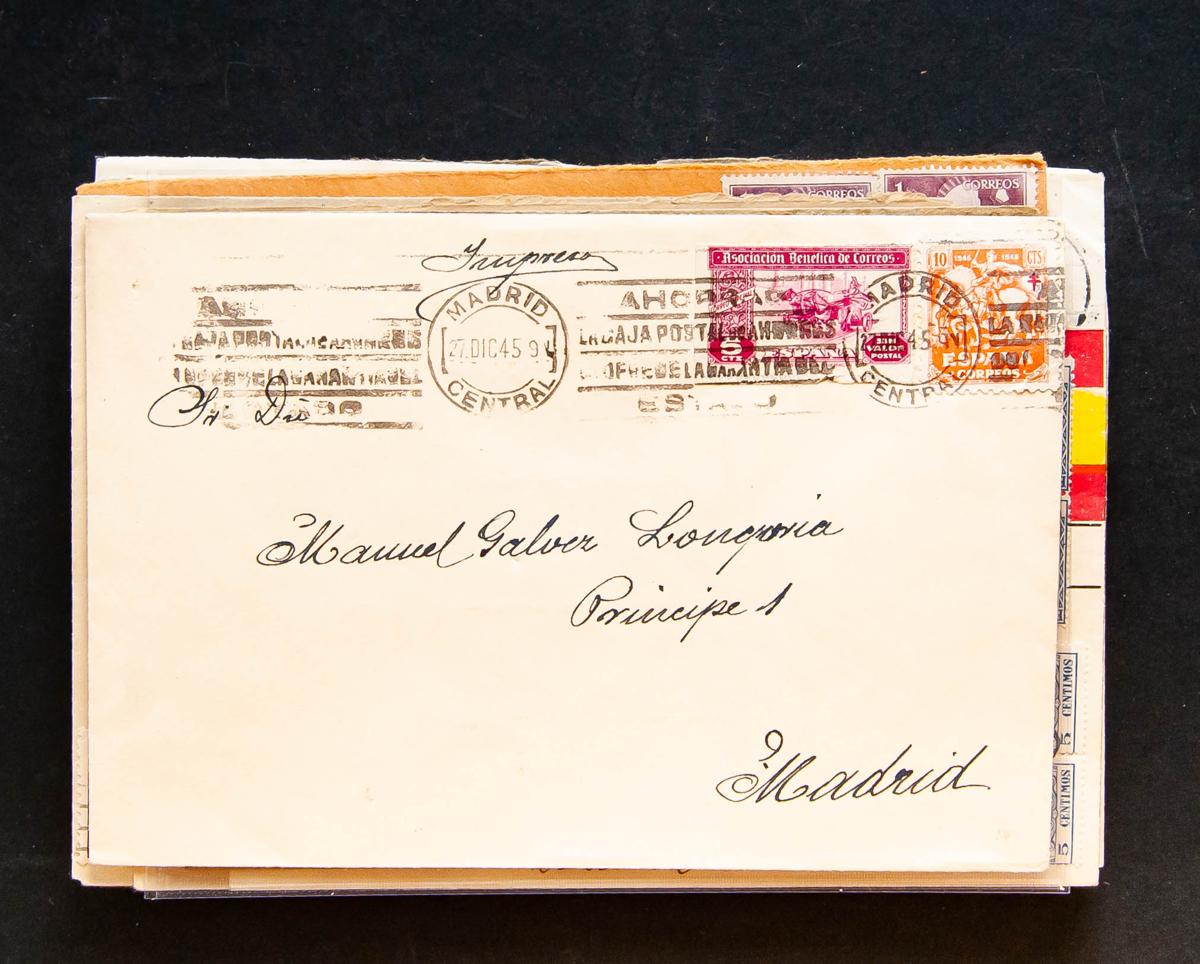 CORREOS
1 CORREOS
Impresos
Asociación Benéfica de Correos
5 CTS
SIN VALOR POSTAL
10 CTS
1945 1946
ESPAÑA
CORREOS
MADRID
27.DIC45 9
CENTRAL
AHORRAD
LA CAJA POSTAL DE AHORROS
OFRECE LA GARANTIA DEL
ESTADO
MADRID
CENTRAL
Sr Dn
Manuel Galvez Longoria
Principe 1
Madrid
5 CENTIMOS
5 CENTIMOS